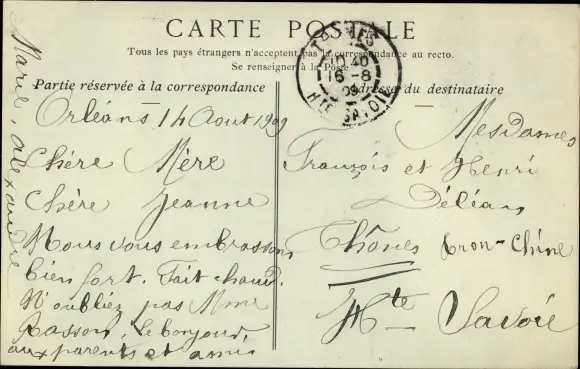 CARTE POSTALE
Tous les pays étrangers n'acceptent pas la correspondance au recto.
Se renseigner à la Poste
Partie réservée à la correspondance
Adresse du destinataire
THÔNES
16-8
09
HTE SAVOIE
Orléans 14 Aout 1909
Chère Mère
Chère Jeanne
Nous vous embrassons
bien fort. Fait chaud.
N'oubliez pas Mme
Rasson, le bonjour
aux parents et amis
Marie, Alexandre
Mesdames
François et Henri
Déléan
Thônes
Hte Savoie